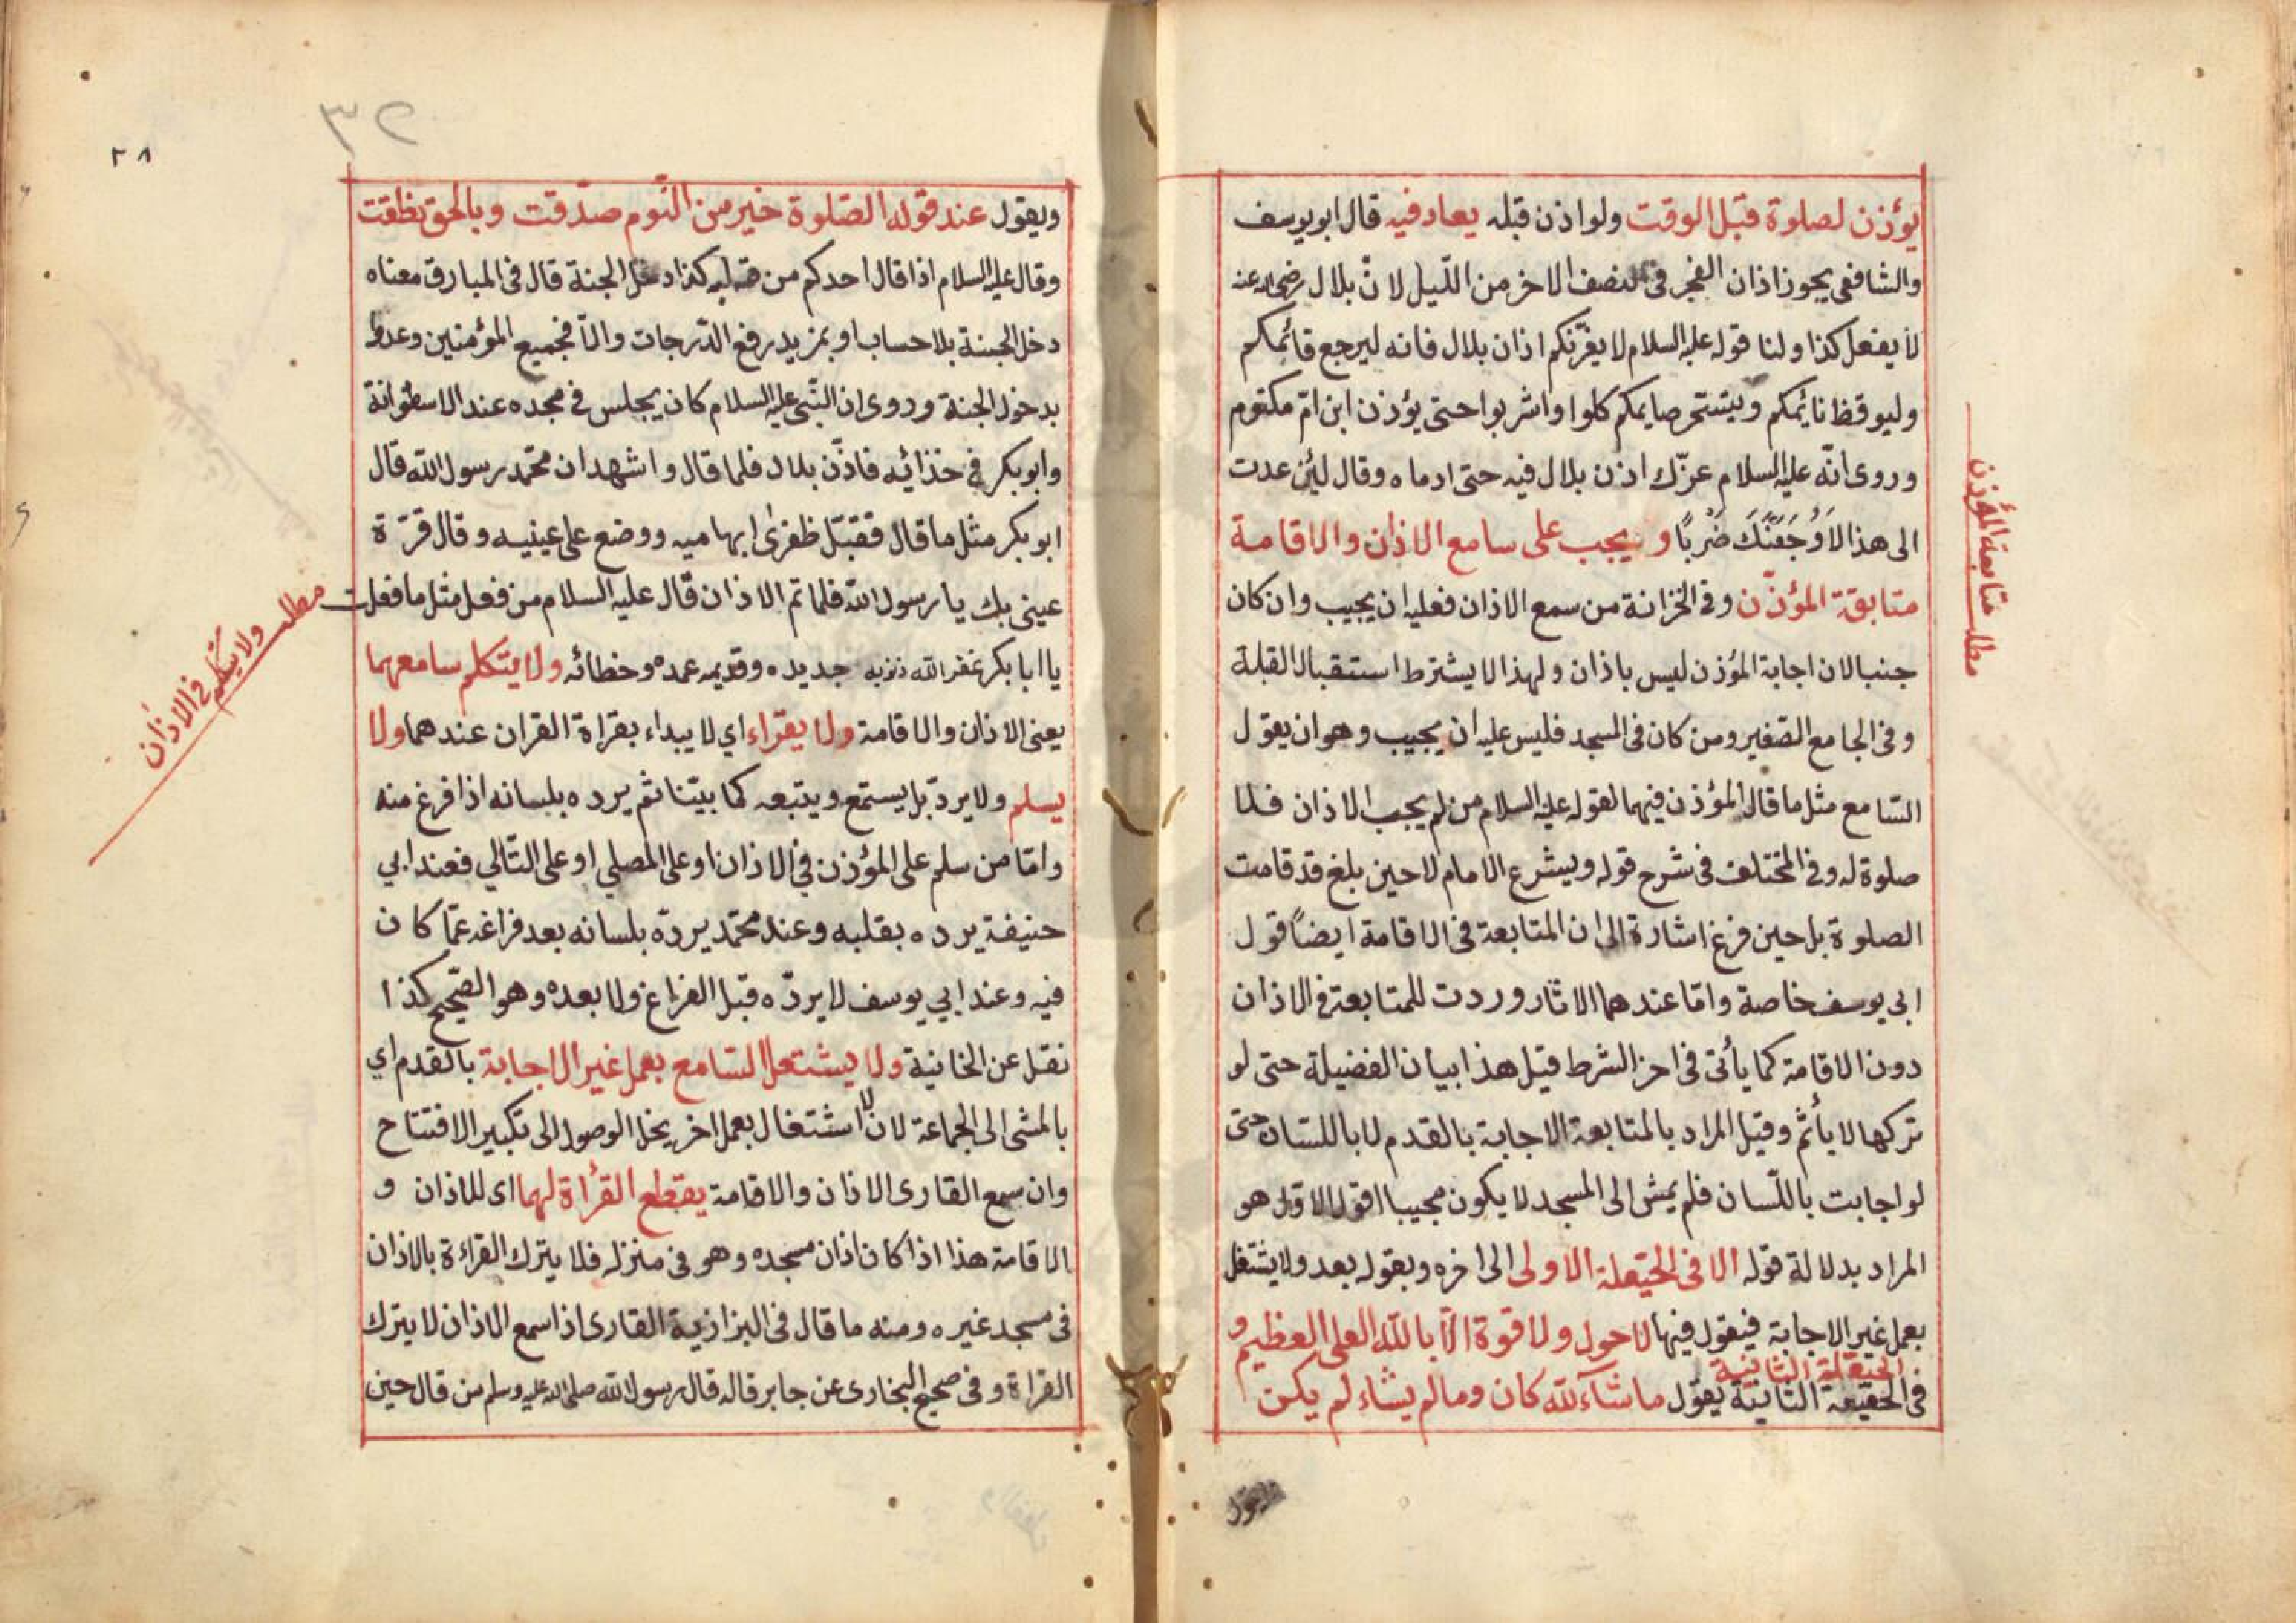 يؤذن لصلوة قبل الوقت ولو اذن قبله يعاد فيه قال ابو يوسف
والشافعى يجوز اذان الفجر فى النصف الاخر من اللّيل لانّ بلال رضى الله عنه
لا يفعل كذا ولنا قوله عليه السلام لا يغرّنكم اذان بلال فانه ليرجع قائمكم
وليوقظ نائمكم ويتسحر صايمكم كلوا واشربوا حتى يؤذن ابن امّ مكتوم
وروى انّه عليه السلام عرّك اذن بلال فيه حتى ادماه وقال لئن عدت
الى هذا لَاَوُجَعَنَّكَ ضَرْبًا و يجب على سامع الاذان والاقامة
متابقة المؤذّن وفى الخزانة من سمع الاذان فعليه ان يجيب وان كان
جنبا لان اجابة المؤذن ليس باذان ولهذا لا يشترط استقبال القبلة
وفى الجامع الصّغير ومن كان فى المسجد فليس عليه ان يجيب وهو ان يقول
السّامع مثل ما قال المؤذن فيهما لقوله عليه السلام من لم يجب الاذان فلا
صلوة له وفى المختلف فى شرح قوله ويشرع الامام لا حين بلغ قد قامت
الصلوة بل حين فرغ اشارة الى ان المتابعة فى الاقامة ايضاً قول
ابى يوسف خاصة وامّا عندهما الاثار وردت للمتابعة فى الاذان
دون الاقامة كما يأتى فى اخر الشرط قيل هذا بيان الفضيلة حتى لو
تركها لا يأثم وقيل المراد بالمتابعة الاجابة بالقدم لا باللسان حتى
لو اجابت باللّسان فلم يمش الى المسجد لا يكون مجيبا اقول الاوّل هو
المراد بدلالة قوله الا فى الحيّعلة الاولى الى اخره وبقوله بعد ولا يشتغل
بعمل غير الاجابة فيقول فيها لا حول ولا قوة الّا بالله العلى العظيم و
الحيّعلة الثانية
فى الحقيعة الثانية يقول ما شآء لله كان وما لم يشاء لم يكن
ويقول
مطلب متابعة المؤذن
٣٢
٢٨
ويقول عند قوله الصّلوة خير من النّوم صدّقت وبالحق نطقت
وقال عليه السلام اذا قال احدكم من قلبه كذا دخل الجنة قال فى المبارق معناه
دخل الجنة بلا حساب او بمزيد رفع الدّرجات والّا فجميع المؤمنين وعدوا
بدخول الجنة وروى ان النّبى عليه السلام كان يجلس فى مسجده عند الاسطوانة
وابو بكر فى حذائه فاذّن بلال فلما قال واشهد ان محمّد رسول الله قال
ابو بكر مثل ما قال فقبّل ظفرى ابهاميه ووضع على عينيه وقال قرّة
عينى بك يا رسول الله فلما تم الاذان قال عليه السلام من فعل مثل ما فعلت
يا ابا بكر غفر الله ذنوبه جديده وقديمه عمده وخطائه ولا يتكلم سامعهما
يعنى الاذان والاقامة ولا يقراء اي لا يبداء بقراة القران عندهما ولا
يسلم ولا يردّ بل يستمع ويتبعه كما بيّنا ثم يرده بلسانه اذا فرغ منه
وامّا من سلم على المؤذن في الاذان او على المصلي او على التّالي فعند ابي
حنيفة يرده بقلبه وعند محمّد يردّه بلسانه بعد فراغه عمّا كان
فيه وعند ابي يوسف لا يردّه قبل الفراغ ولا بعده وهو الصّحيح كذا
نقل عن الخانية ولا يشتغل السّامع بعمل غير الاجابة بالقدم اي
بالمشى الى الجماعة لانّ الاشتغال بعمل اخر يخل الوصول الى تكبير الافتتاح
وان سمع القارى الاذان والاقامة يقطع القرأة لهما اى للاذان و
الاقامة هذا اذا كان اذان مسجده وهو فى منزله فلا يترك القراءة بالاذان
فى مسجد غيره ومنه ما قال فى البزازية القارى اذا سمع الاذان لا يترك
القراة وفى صحيح البخارى عن جابر قاله قال رسول الله صلى الله عليه وسلم من قال حين
مطلب ولا يتكلم فى الاذان